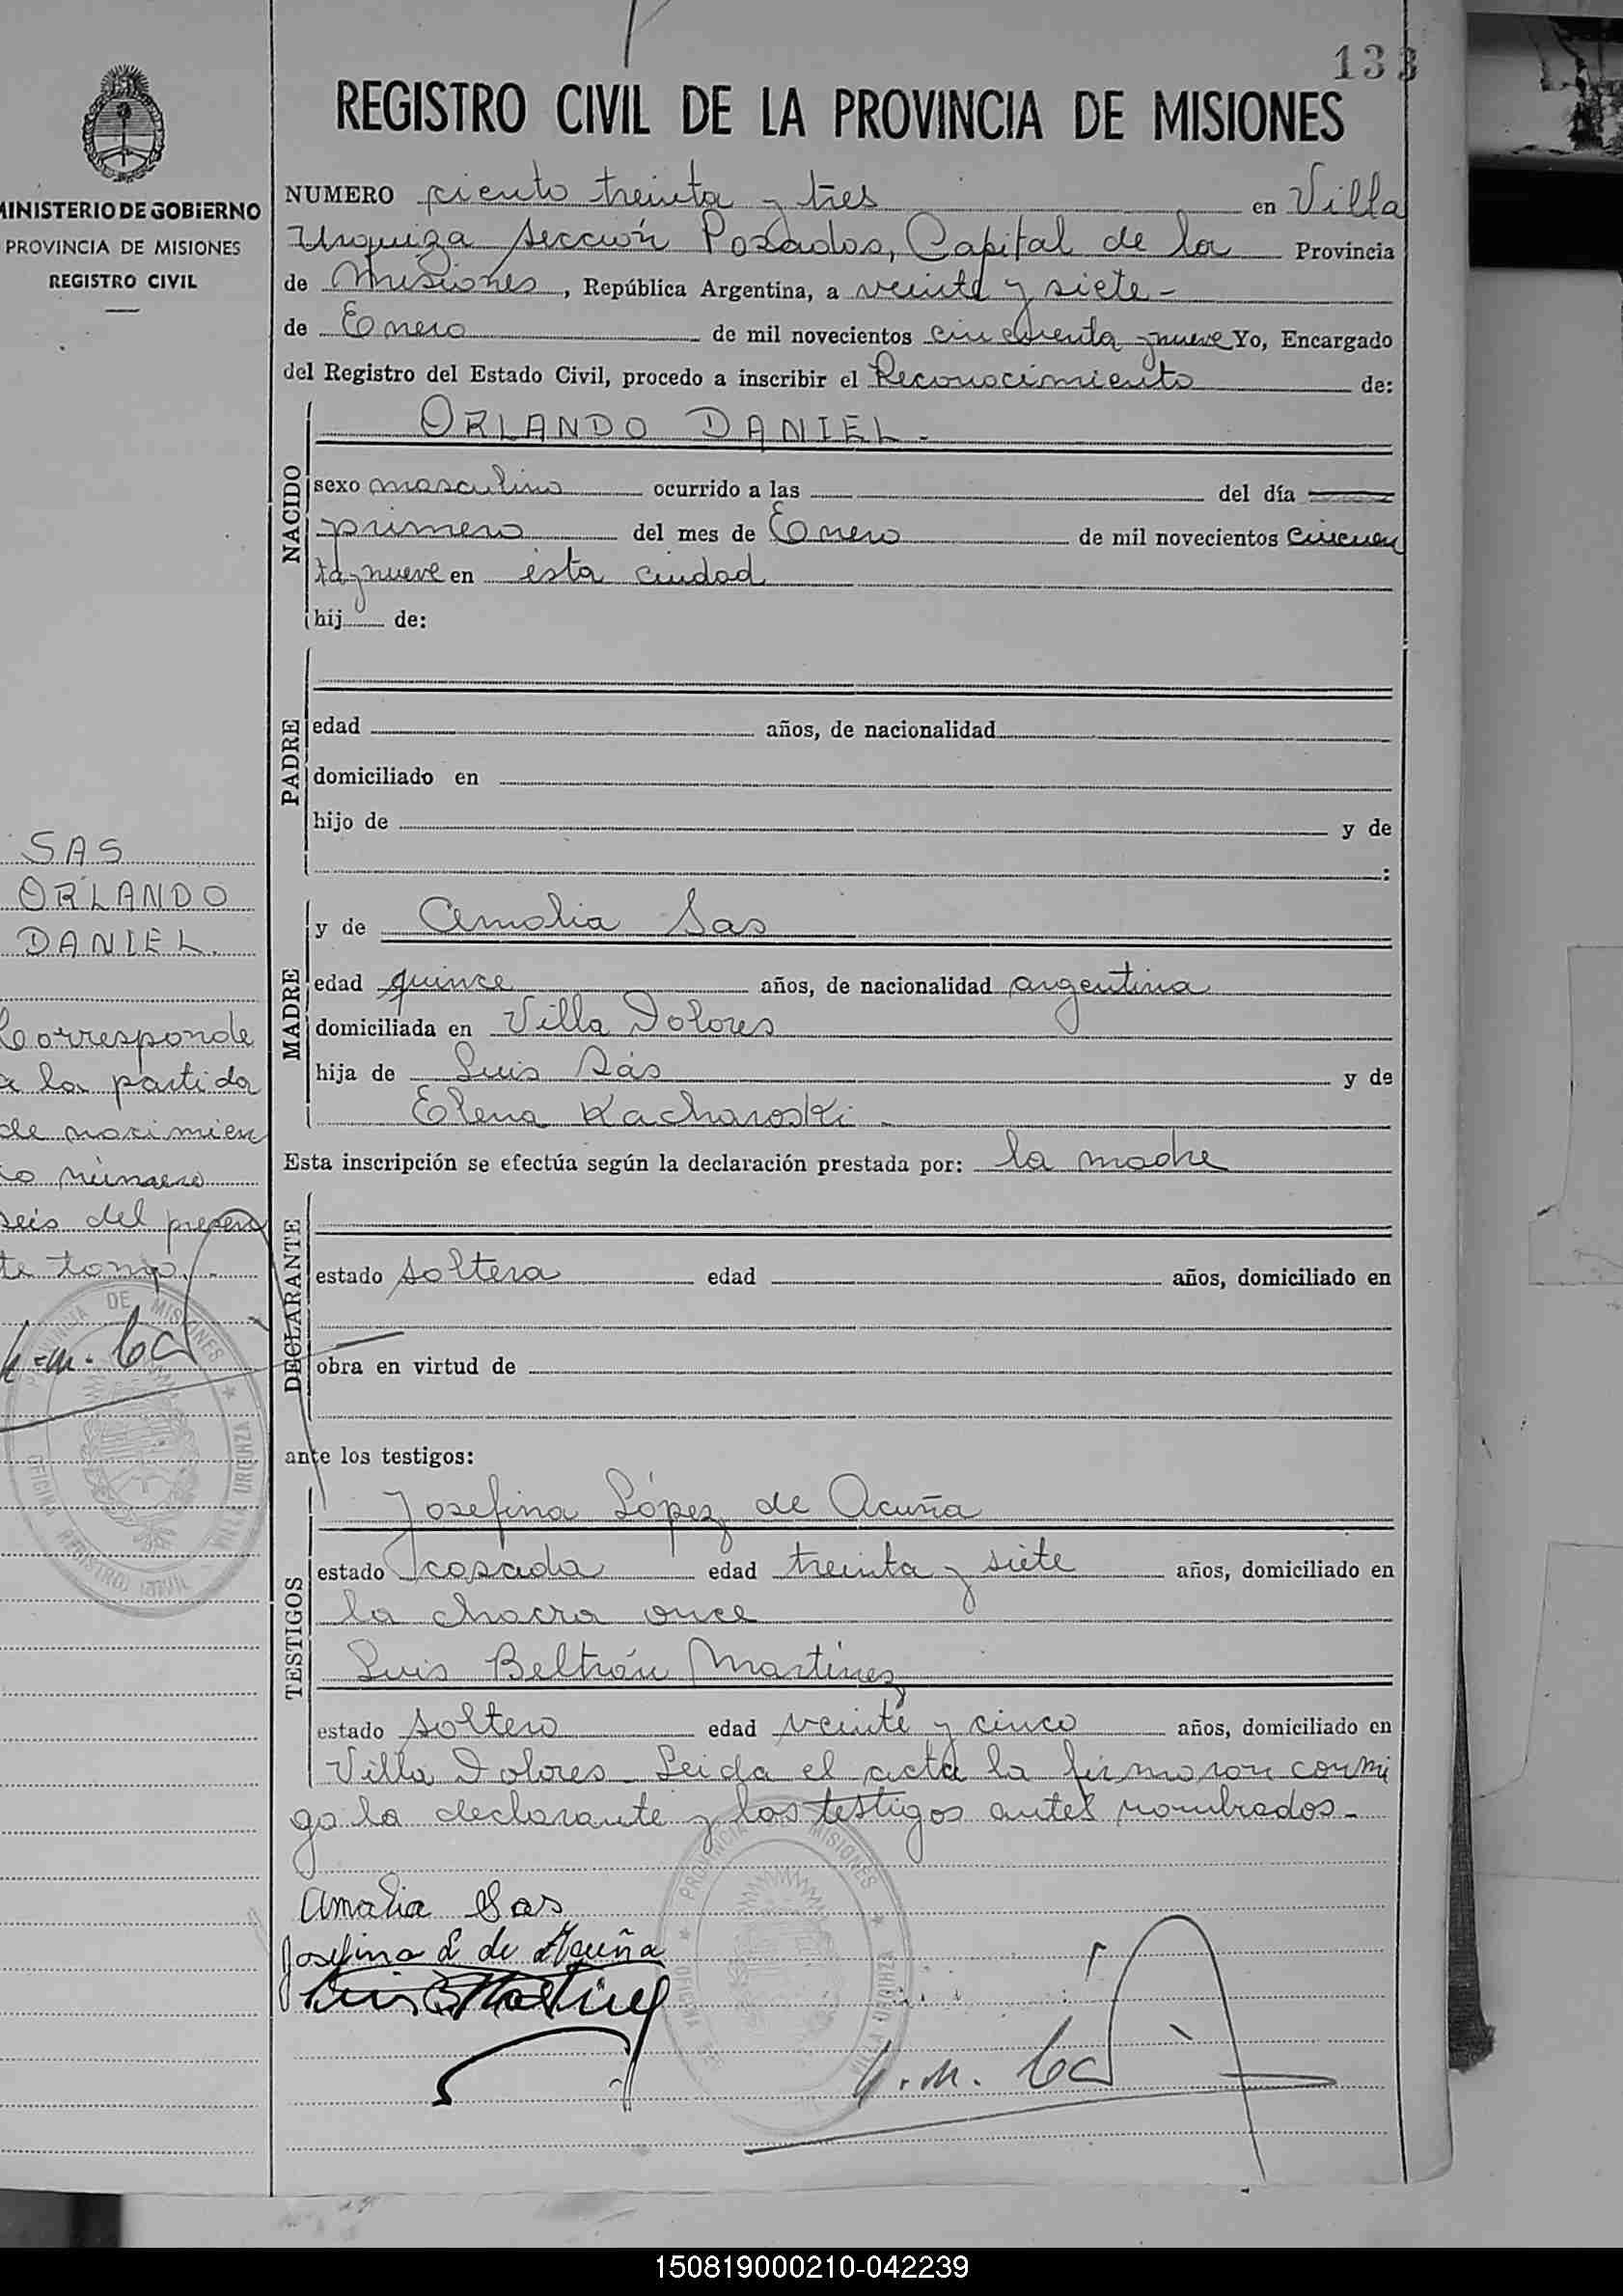 133
REGISTRO CIVIL DE LA PROVINCIA DE MISIONES
MINISTERIO DE GOBIERNO
PROVINCIA DE MISIONES
REGISTRO CIVIL
NUMERO ciento treinta y tres en Villa
Urquiza sección Posadas, Capital de la Provincia
de Misiones, República Argentina, a veinte y siete -
de Enero de mil novecientos cincuenta y nueve Yo, Encargado
del Registro del Estado Civil, procedo a inscribir el Reconocimiento de:
NACIDO
ORLANDO DANIEL.-
sexo masculino ocurrido a las del día
primero del mes de Enero de mil novecientos cincuen
ta y nueve en ésta ciudad
hij de:
PADRE
edad años, de nacionalidad
domiciliado en
hijo de y de
:
SAS
ORLANDO
DANIEL.
Corresponde
a la partida
de nacimien
to número
seis del presen
te tomo.-
MADRE
y de Amalia Sas
edad quince años, de nacionalidad argentina
domiciliada en Villa Dolores
hija de Luis Sás y de
Elena Kacharoski -
Esta inscripción se efectúa según la declaración prestada por: la madre
DECLARANTE
estado soltera edad años, domiciliado en
obra en virtud de
ante los testigos:
TESTIGOS
Josefina López de Acuña
estado casada edad treinta y siete años, domiciliado en
la chacra once
Luis Beltrán Martinez
estado soltero edad veinte y cinco años, domiciliado en
Villa Dolores - Leida el acta la firmaron conmi
go la declarante y los testigos antes nombrados -
Amalia Sas
Josefina L de Acuña
Luis B Martinez
PROVINCIA DE MISIONES
OFICINA REGISTRO CIVIL VILLA URQUIZA
PROVINCIA MISIONES
150819000210-042239